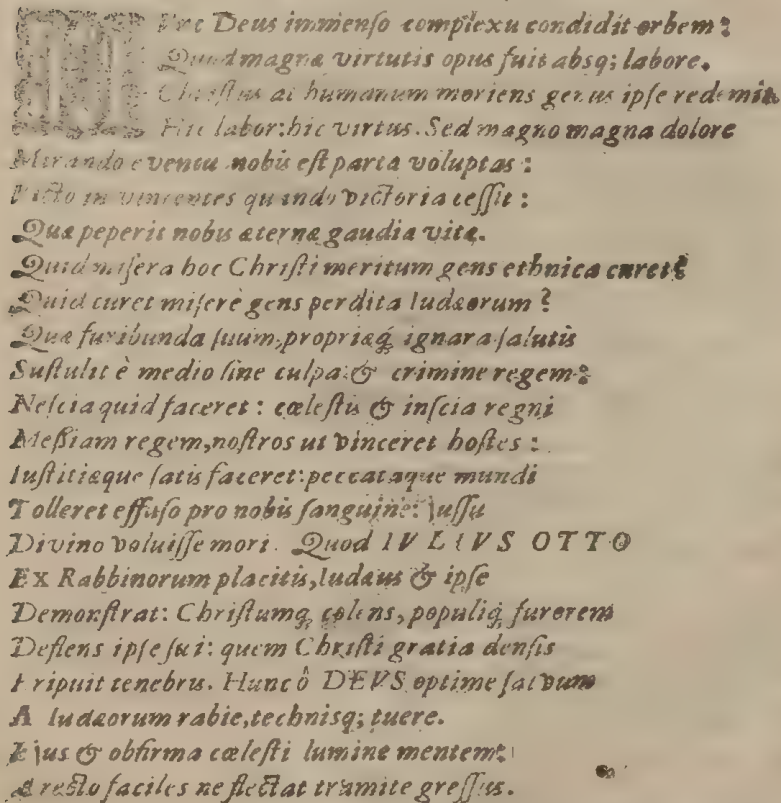 Hunc Deus immenſo complexu condidit orbem:
Quod magnæ virtutis opus fuit absq; labore.
Chriſtus at humanum moriens genus ipſe redemit.
Hic labor: hic virtus. Sed magno magna dolore
Mirando eventu nobis eſt parta voluptas:
Victo in vincentes quando victoria ceſſit:
Quæ peperit nobis æternæ gaudia vitæ.
Quid miſera hoc Chriſti meritum gens ethnica curet?
Quid curet miſerè gens perdita Iudæorum?
Quæ furibunda ſuum, propriæq́ ignara ſalutis
Suſtulit è medio ſine culpa & crimine regem:
Neſcia quid faceret: cæleſtis & inſcia regni
Meßiam regem, noſtros ut vinceret hoſtes:
Iuſtitiæque ſatis faceret: peccataque mundi
Tolleret effuſo pro nobis ſanguine: juſſu
Divino voluiſſe mori. Quod IVLIVS OTTO
EX Rabbinorum placitis, Iudæus & ipſe
Demonſtrat: Chriſtumq́ colens, populiq́ furorem
Deflens ipſe ſui: quem Chriſti gratia denſis
Eripuit tenebris. Hunc ô DEVS optime ſalvum
A Iudæorum rabie, technisq; tuere.
Ejus & obfirma cæleſti lumine mentem:
A recto faciles ne flectat tramite greſſus.